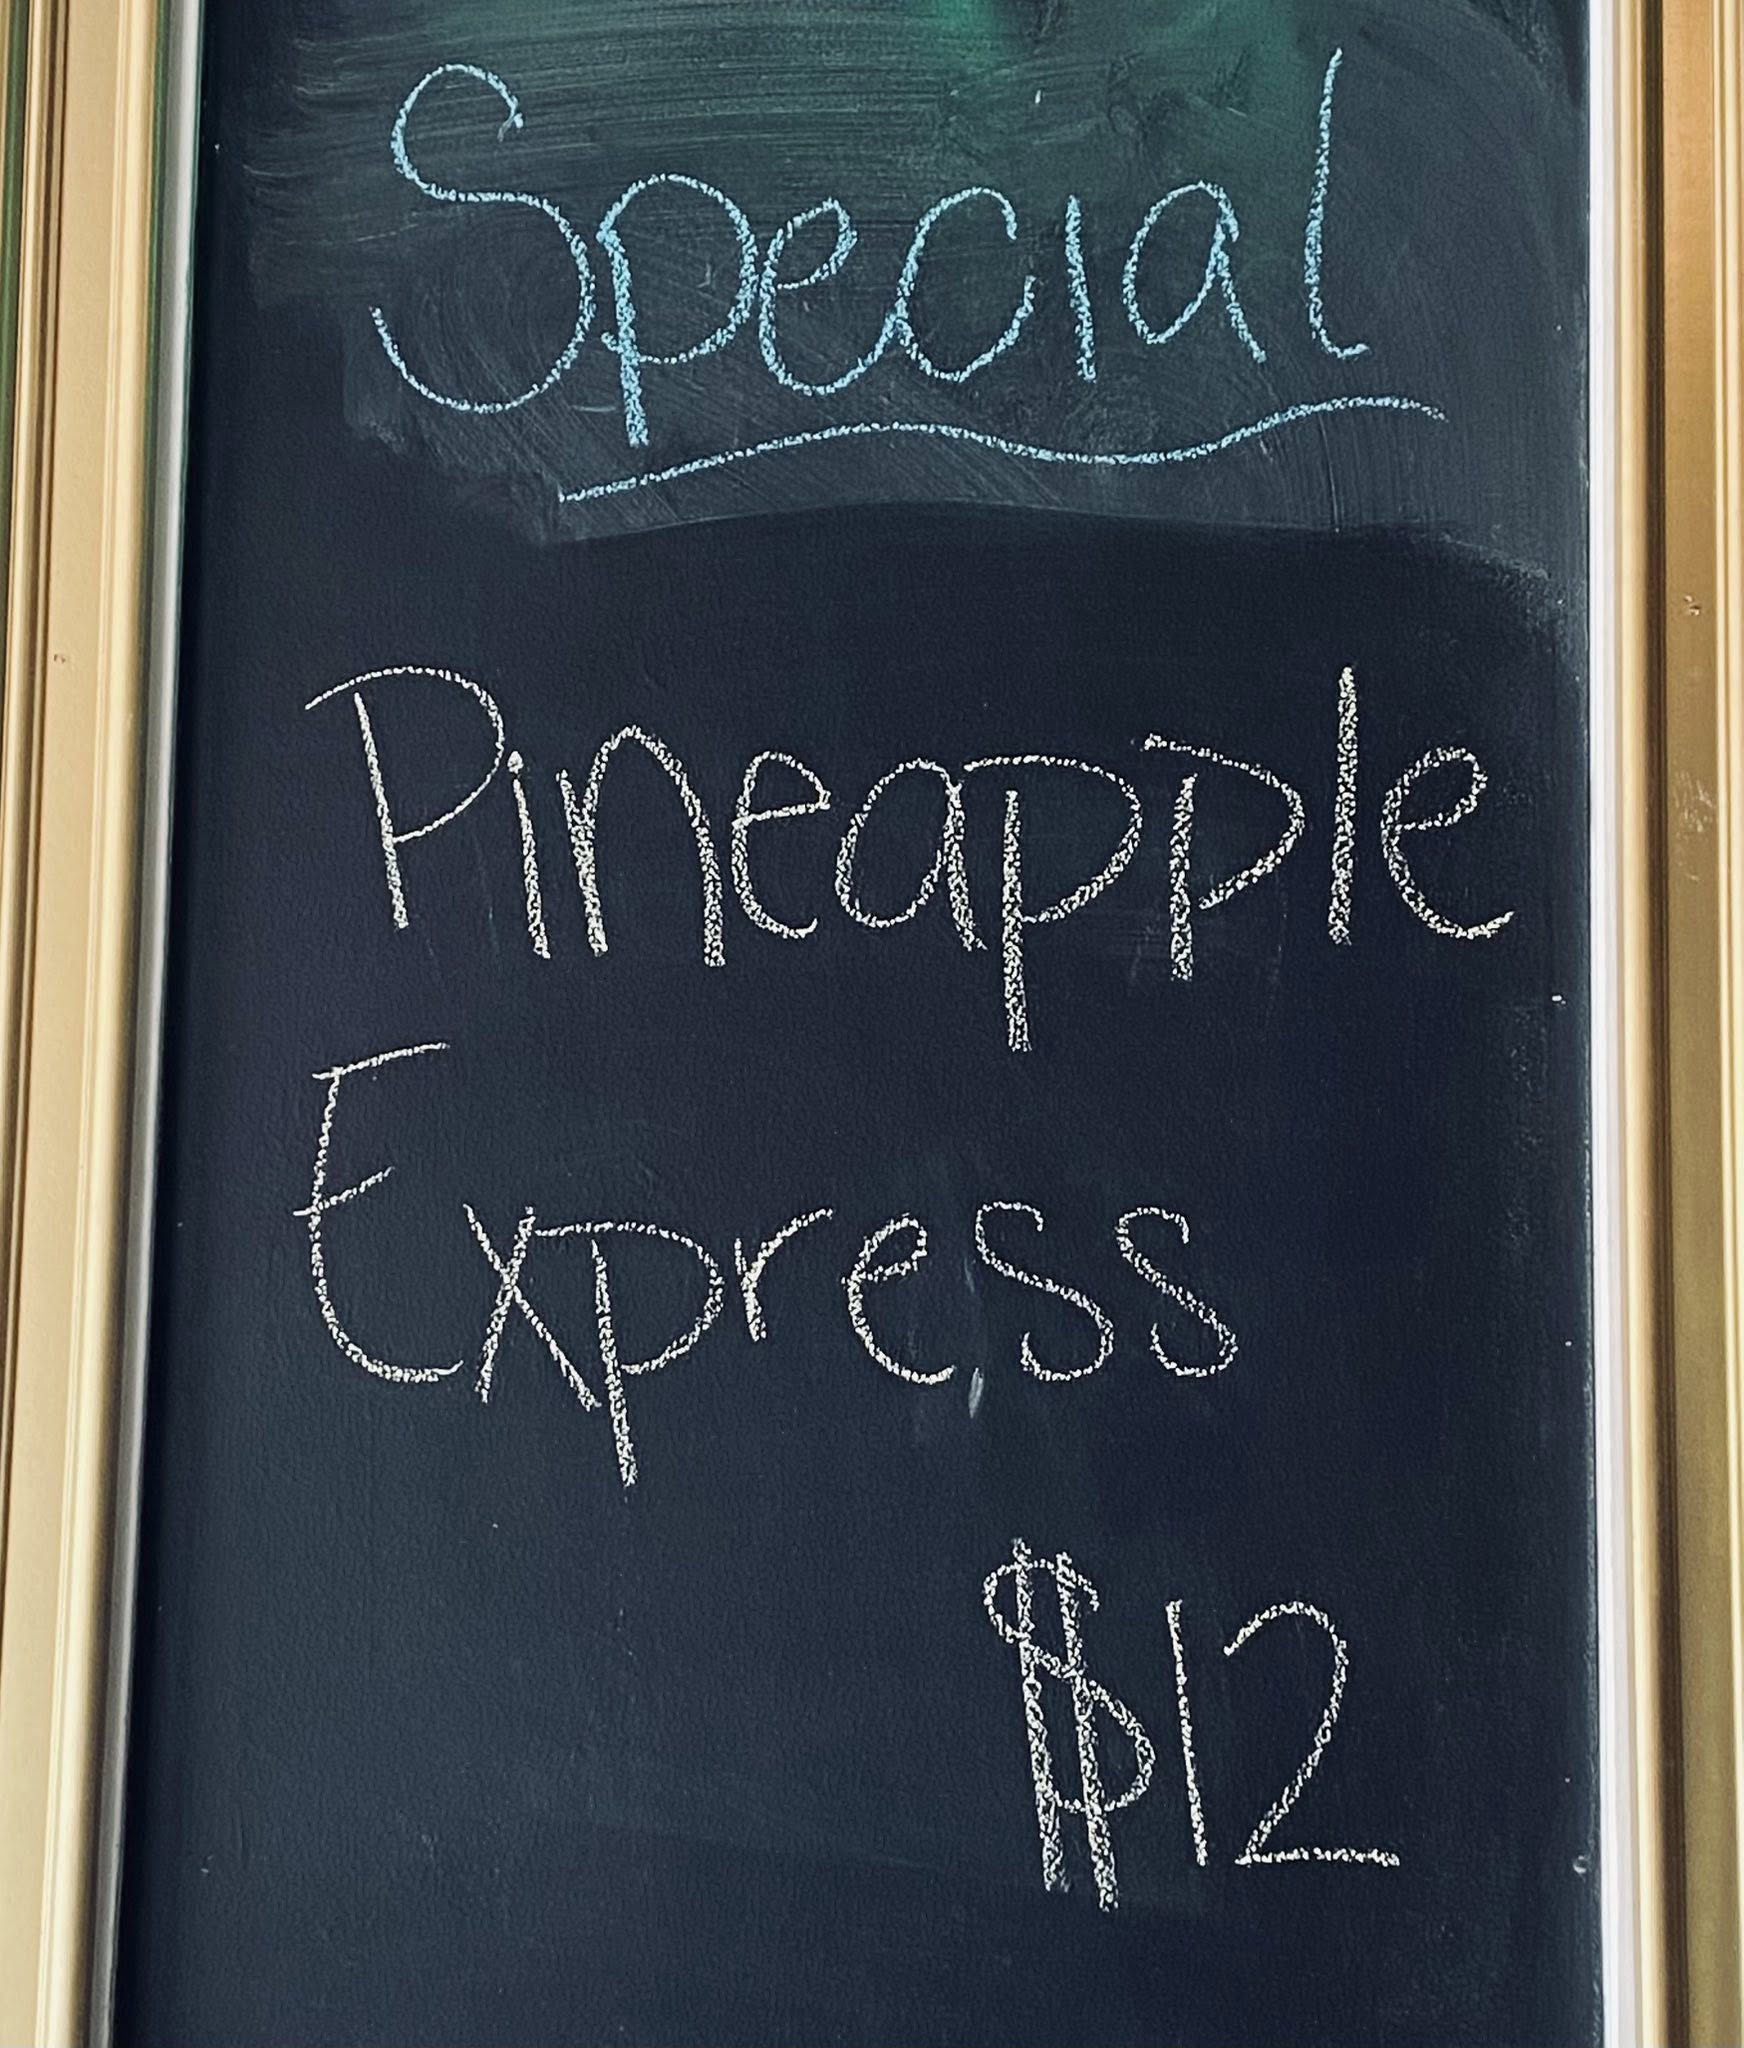 Special
Pineapple
Express
$12